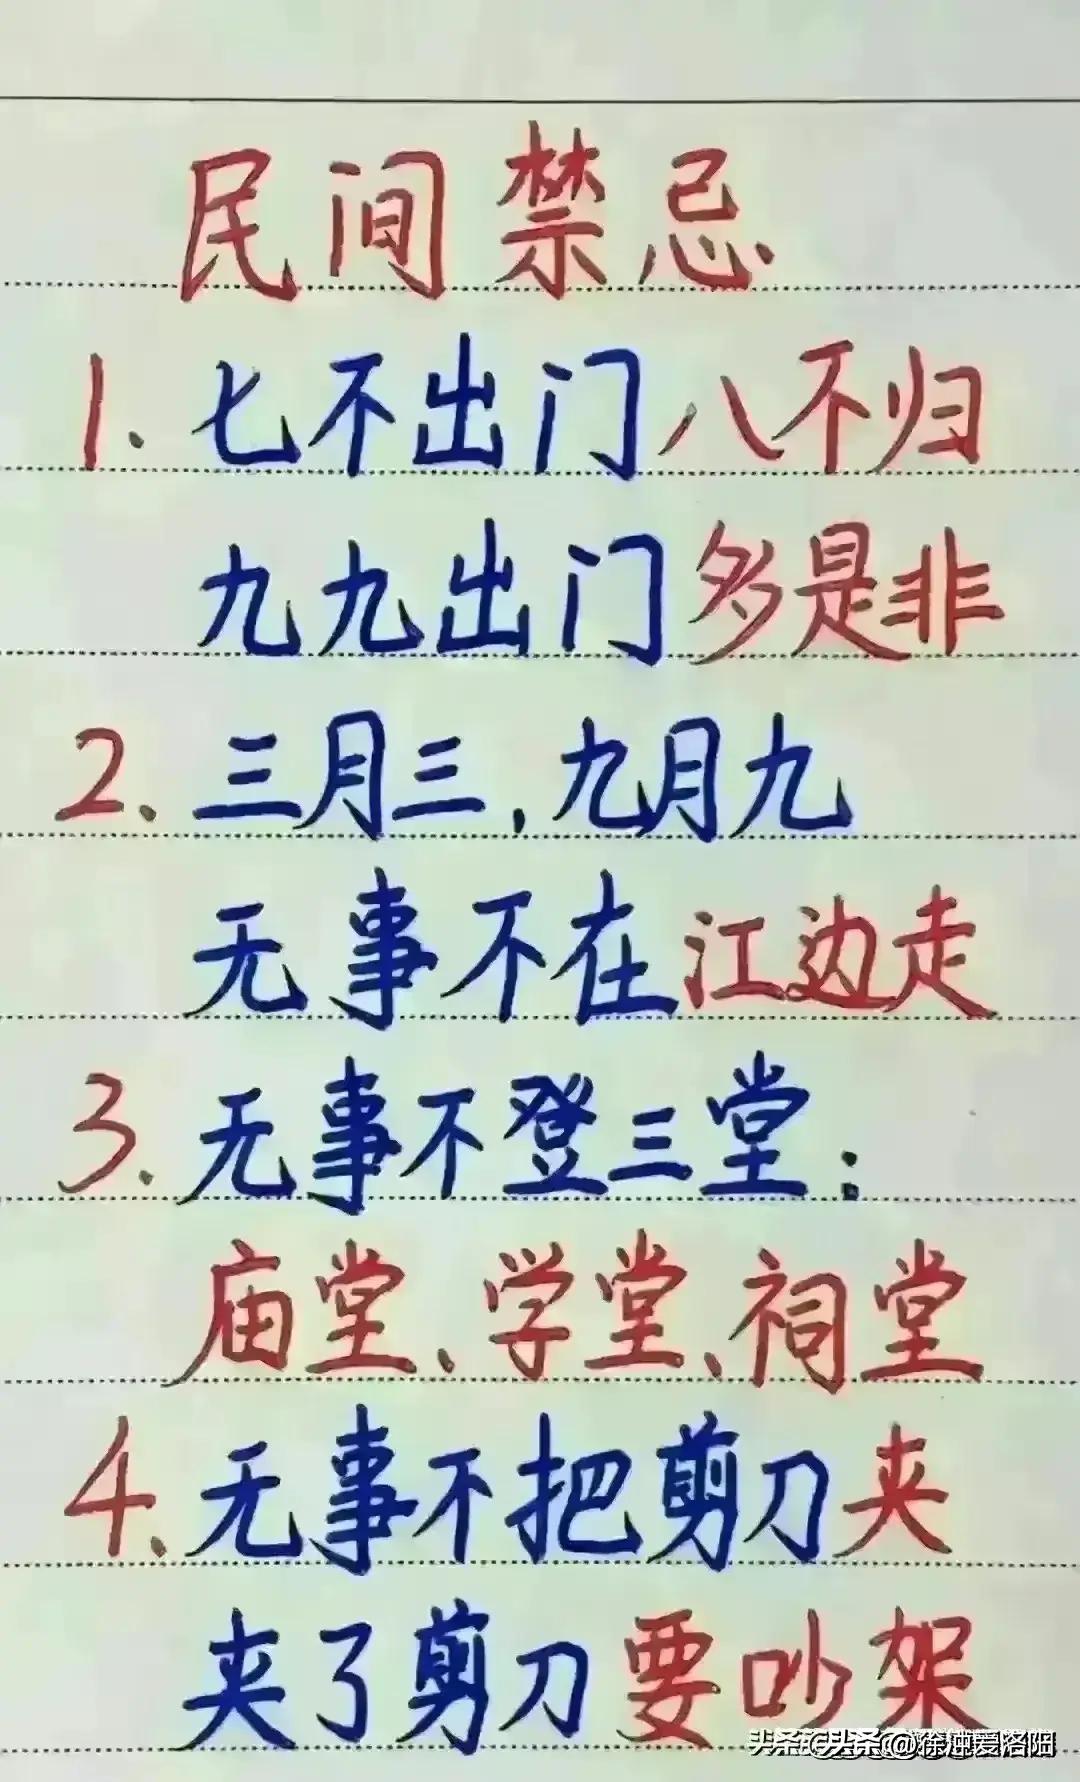 民间禁忌
1.七不出门八不归
九九出门多是非
2.三月三,九月九
无事不在江边走
3.无事不登三堂:
庙堂、学堂、祠堂
4.无事不把剪刀夹
夹了剪刀要吵架
头条@徐浊爱洛阳